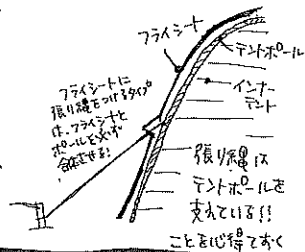 フライシート
テントポール
インナー
テント
フライシートに
張り縄をつけるタイプ
は、フライシートと
ポールを必ず
合体させる!
張り縄は
テントポールを
支えている!!
ことを心得ておく